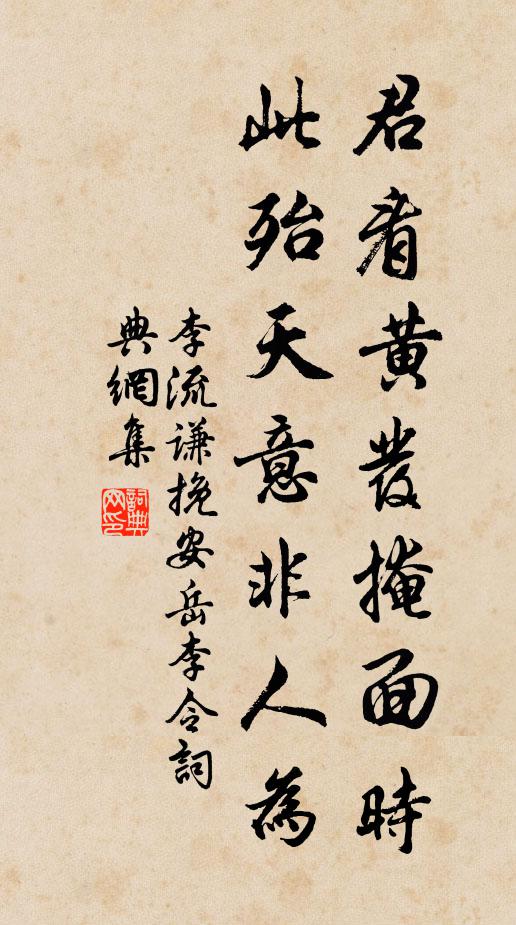 君看黄髮掩面時
此殆天意非人為
李流謙挽安岳李令詞
典網集
詞典網印